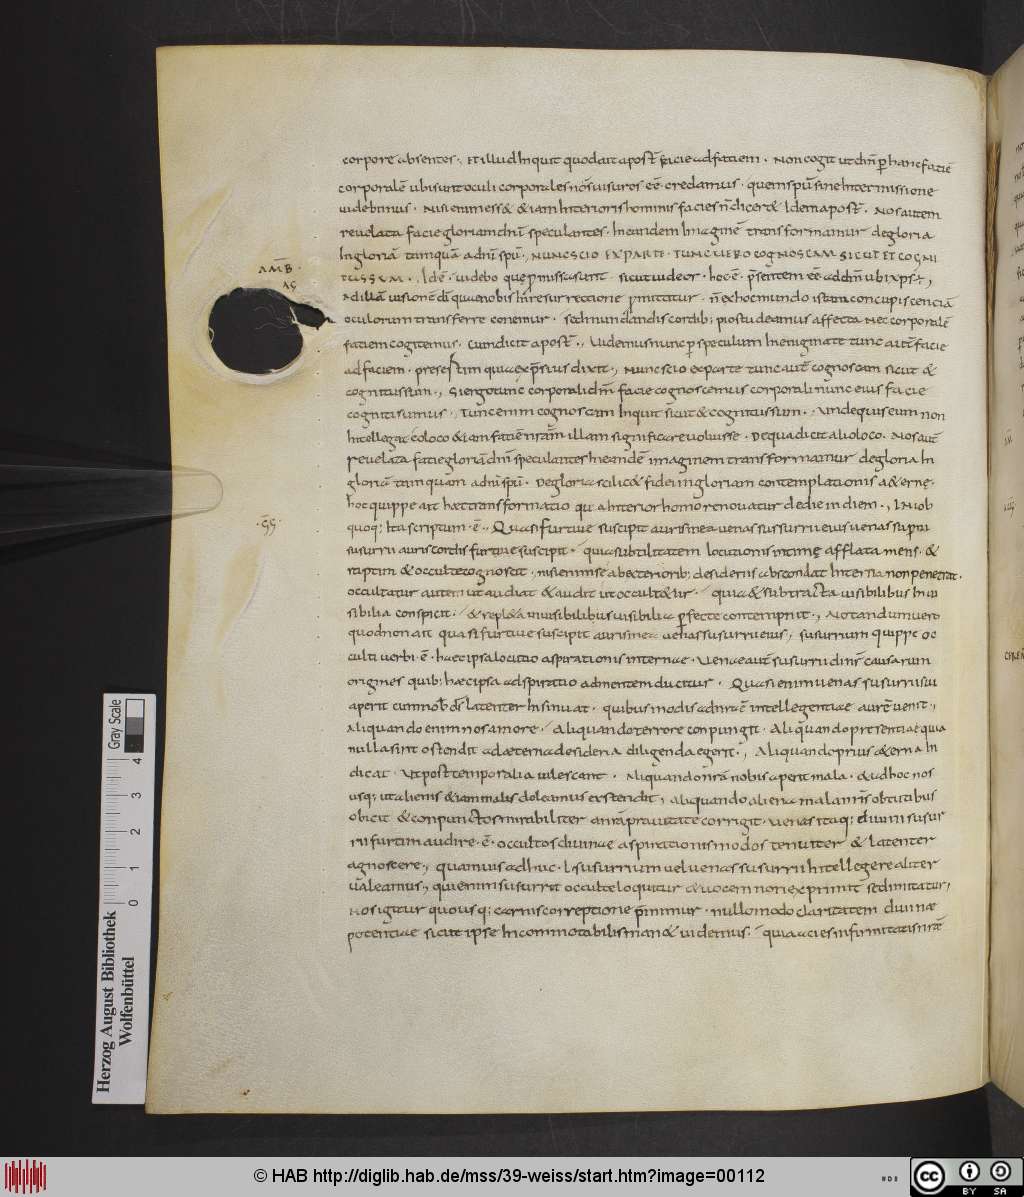 corpore absentes. Et illud inquit quod ait apost facie ad faciem. Non cogit ut dm p hanc faciē
corporalē ubi sunt oculi corporales nos uisuros eē credamus. quem spū sine intermissione
uidebimus. Nisi enim ess& & iam interioris hominis facies n̄ dicer& idem apost. Nos autem
reuelata facie gloriam dn̄i speculantes. in eandem imaginē transformamur de gloria
in gloriā tamquā a dn̄i spū. NUNC SCIO EX PARTE. TUNC UERO COGNOSCAM SICUT ET COGNI
TUS SUM. Idē. uidebo quę pmissa sunt. sicut uideor. hoc ē. p̄sentem eē ad dm̄ ubi xps ē,
AMB
AG
Ad illā uisionē dī quae nobis in resurrectione pmittitur. n̄ ex hoc mundo istam concupiscenciā
oculorum transferre conemur. sed mundandis cordib; pio studeamus affectu Nec corporalē
faciem cogitemus. Cum dicit apost., Uidemus nunc p speculum in enigmate tunc autē facie
ad faciem. presertim quia expssius dixit., Nunc scio ex parte tunc autē cognoscam sicut &
cognitus sum., Si ergo tunc corporali dm̄ facie cognoscemus corporali nunc eius facie
cogniti sumus. Tunc enim cognoscam inquit sicut & cognitus sum. Unde quis eum non
intellegat eo loco & iam faciē nr̄am illam significare uoluisse. De qua dicit alio loco. Nos autē
reuelata facie gloriā dn̄i speculantes in eandē imaginem transformamur de gloria in
gloriā tamquam a dn̄i spū. De gloria scilic& fidei in gloriam contemplationis a&ernę.
hoc quippe ait haec transformatio qua interior homo renouatur de die in diem., IN IOB
GG
quoq; ita scriptum ē. Quasi furtiue suscipit auris mea uenas susurri eius uenas supni
susurrii auris cordis furtiue suscipit. quia subtilitatem locutionis intimę afflata mens. &
raptim & occulte cognoscit. nisi enim se ab exteriorib; desideriis abscondat interna non penetrat.
occultatur autem ut audiat & audit ut occult&ur. quia & subtracta uisibilibus inui
sibilia conspicit. & repl&a inuisibilibus uisibilia pfecte contempnit., Notandum uero
quod non ait quasi furtiue suscipit auris mea uenas susurri eius, susurrium quippe oc
culti uerbi ē. haec ipsa locutio aspirationis internae. Uenae autē susurrii dinr̄ causarum
origines quib; haec ipsa adspiratio ad mentem ducitur. Quasi enim uenas susurri sui
aperit cum nob dī latenter insinuat. quibus modis ad nr̄ae intellegentiae aurē uenit.,
Aliquando enim nos amore. Aliquando terrore conpungit. Aliquando presentia quia
nulla sint ostendit ad aeterna desideria diligenda egerit., Aliquando prius a&erna in
dicat. Ut post temporalia uilescant. Aliquando nr̄a nobis aperit mala. & ad hoc nos
usq; ut alienis & iam malis doleamus extendit, Aliquando aliena mala nr̄is obtutibus
obicit & conpunctos mirabiliter a nr̄a prauitate corrigit. Uenas itaq; diuini susur
rii furtim audire. ē. occultos diuinae aspirationis modos tenuiter & latenter
agnoscere., quamuis adhuc. I susurrium uel uenas susurrii intellegere aliter
ualeamus, qui enim susurrat occulte loquitur & uocem non exprimit sed imitatur,
Nos igitur quousq; carnis correptione p̄mimur. nullo modo claritatem diuinae
potentiae sicut ipse incommotabilis man& uidemus. quia acies infirmitatis nr̄ae
Gray Scale
0 1 2 3 4
Herzog August Bibliothek
Wolfenbüttel
© HAB http://diglib.hab.de/mss/39-weiss/start.htm?image=00112
cc BY SA